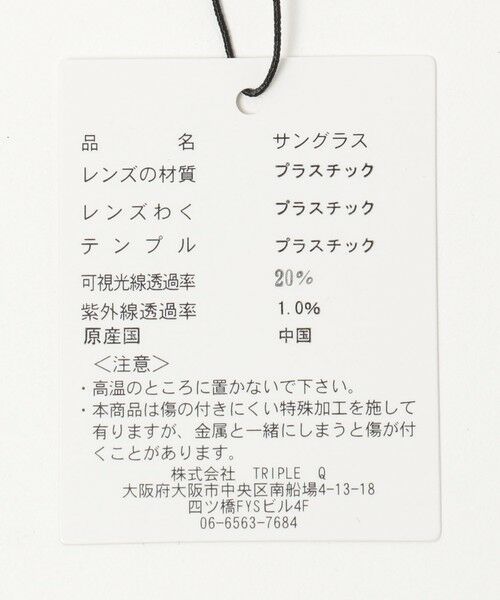 品 名 サングラス
レンズの材質 プラスチック
レンズわく プラスチック
テンプル プラスチック
可視光線透過率 20%
紫外線透過率 1.0%
原産国 中国
＜注意＞
・高温のところに置かないで下さい。
・本商品は傷の付きにくい特殊加工を施して
有りますが、金属と一緒にしまうと傷が付
くことがあります。
株式会社 TRIPLE Q
大阪府大阪市中央区南船場4-13-18
四ツ橋FYSビル4F
06-6563-7684